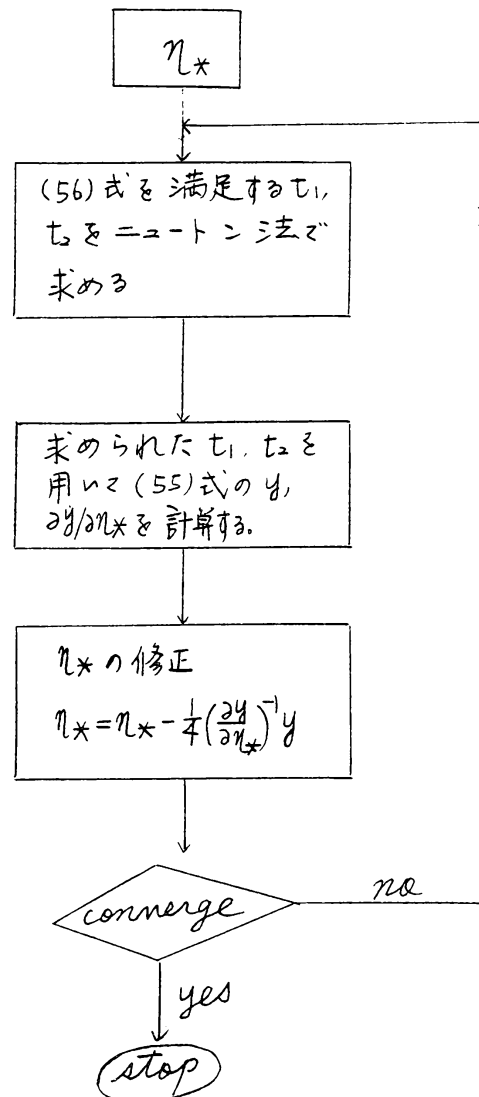 η*
(56)式を満足するt₁,
t₂をニュートン法で
求める
求められたt₁, t₂を
用いて(55)式のy,
∂y/∂η*を計算する。
η*の修正
η* = η* - 1/4 (∂y/∂η*)⁻¹ y
connerge
no
yes
stop